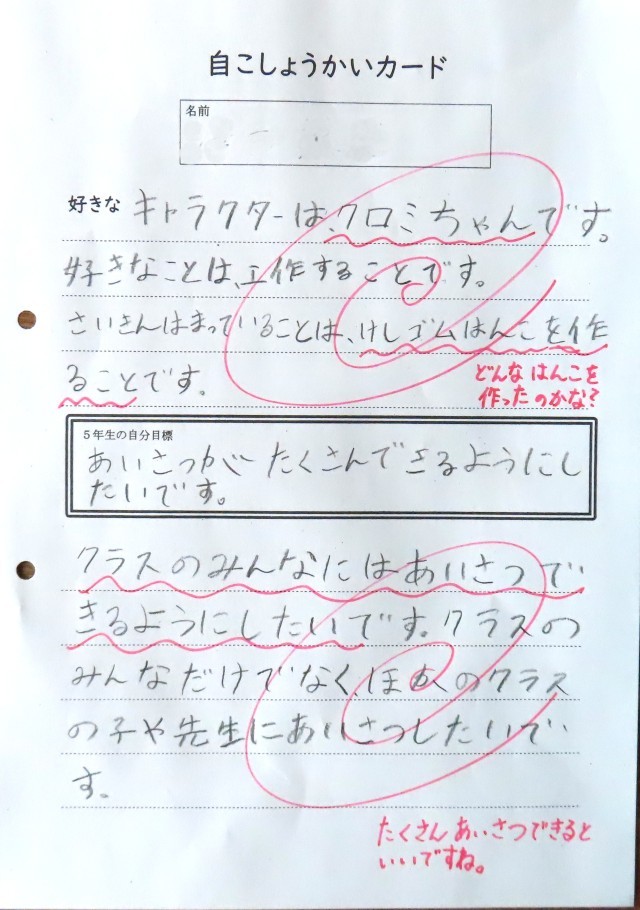 自こしょうかいカード
名前
好きな キャラクターは、クロミちゃんです。
好きなことは、工作することです。
さいきんはまっていることは、けしゴムはんこを作
ることです。
どんな はんこを
作ったのかな?
5年生の自分目標
あいさつが たくさんできるようにし
たいです。
クラスのみんなにはあいさつで
きるようにしたいです。クラスの
みんなだけでなく、ほかのクラス
の子や先生にあいさつしたいで
す。
たくさん あいさつできると
いいですね。